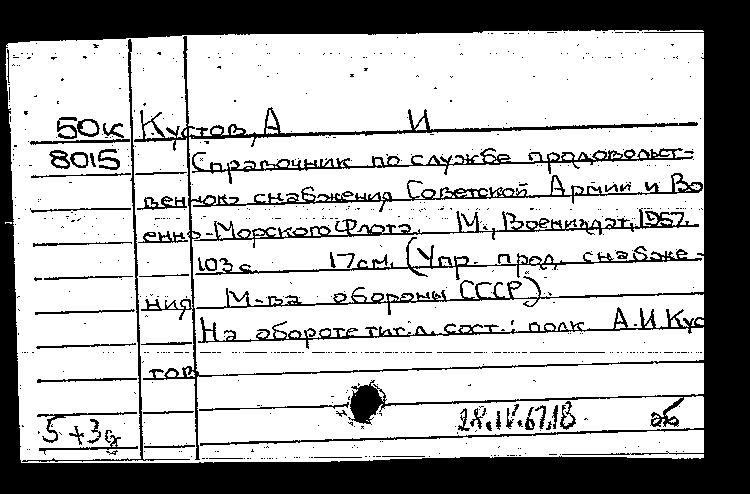 50к Кустов, А И
8015 Справочник по службе продовольст-
венном снабжения Советской Армии и Во
енно-Морского Флота. М., Воениздат, 1957.
103 с. 17 см. (Упр. прод. снабже-
ния М-ва обороны СССР).
На обороте тит. л. сост.: полк. А.И Кус
тов
5+3д 28.IV.67.18